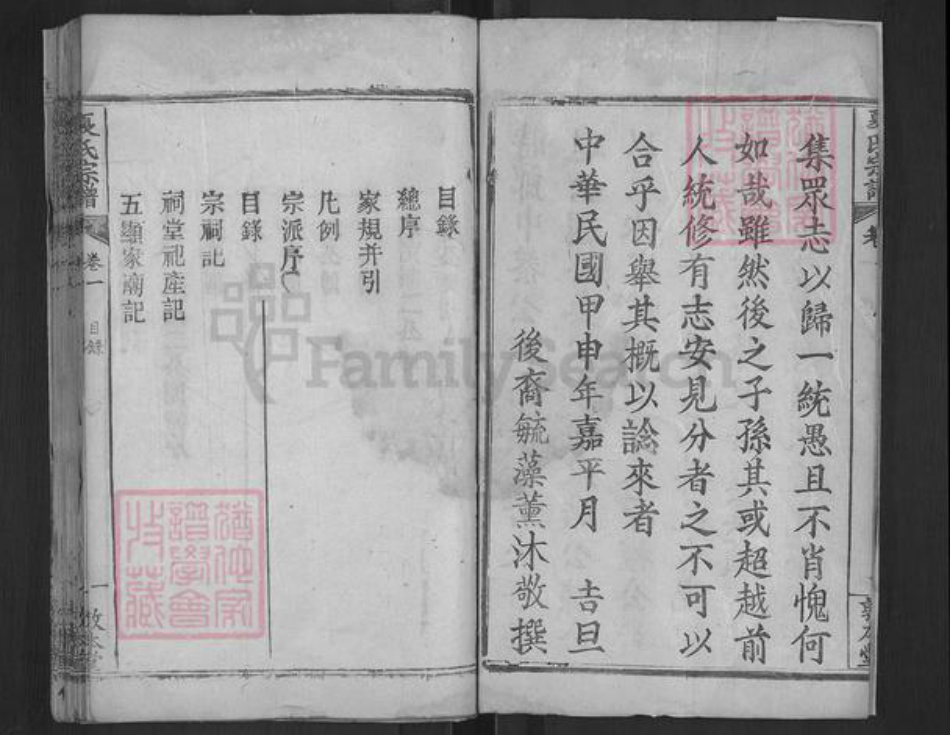 集眾志以歸一統愚且不肖愧何
如哉雖然後之子孫其或超越前
人統修有志安見分者之不可以
合乎因舉其概以諗來者
中華民國甲申年嘉平月 吉旦
後裔毓藻薰沐敬撰
目錄
總序
家規并引
凡例
宗派序
目錄
宗祠記
祠堂祀產記
五顯家廟記
氏宗譜
卷一
目錄
一
FamilySearch